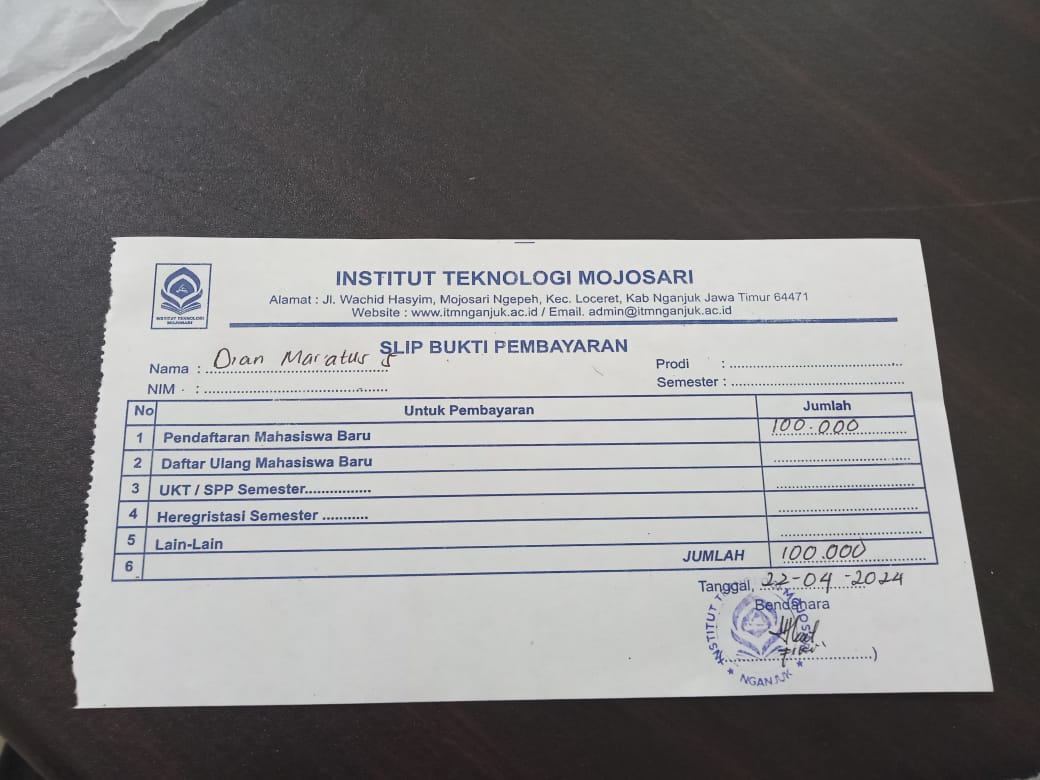 INSTITUT TEKNOLOGI MOJOSARI
Alamat : Jl. Wachid Hasyim, Mojosari Ngepeh, Kec. Loceret, Kab Nganjuk Jawa Timur 64471
Website : www.itmnganjuk.ac.id / Email. admin@itmnganjuk.ac.id
INSTITUT TEKNOLOGI
MOJOSARI
SLIP BUKTI PEMBAYARAN
Nama : Dian Maratus S
Prodi :
NIM :
Semester :
No Untuk Pembayaran Jumlah
1 Pendaftaran Mahasiswa Baru 100.000
2 Daftar Ulang Mahasiswa Baru
3 UKT / SPP Semester................
4 Heregristasi Semester ...........
5 Lain-Lain
6 JUMLAH 100.000
Tanggal, 22-04-2024
Bendahara
INSTITUT MOJOSARI
NGANJUK